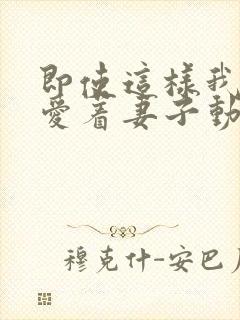 即使這樣我
愛著妻子動
穆克什-安巴